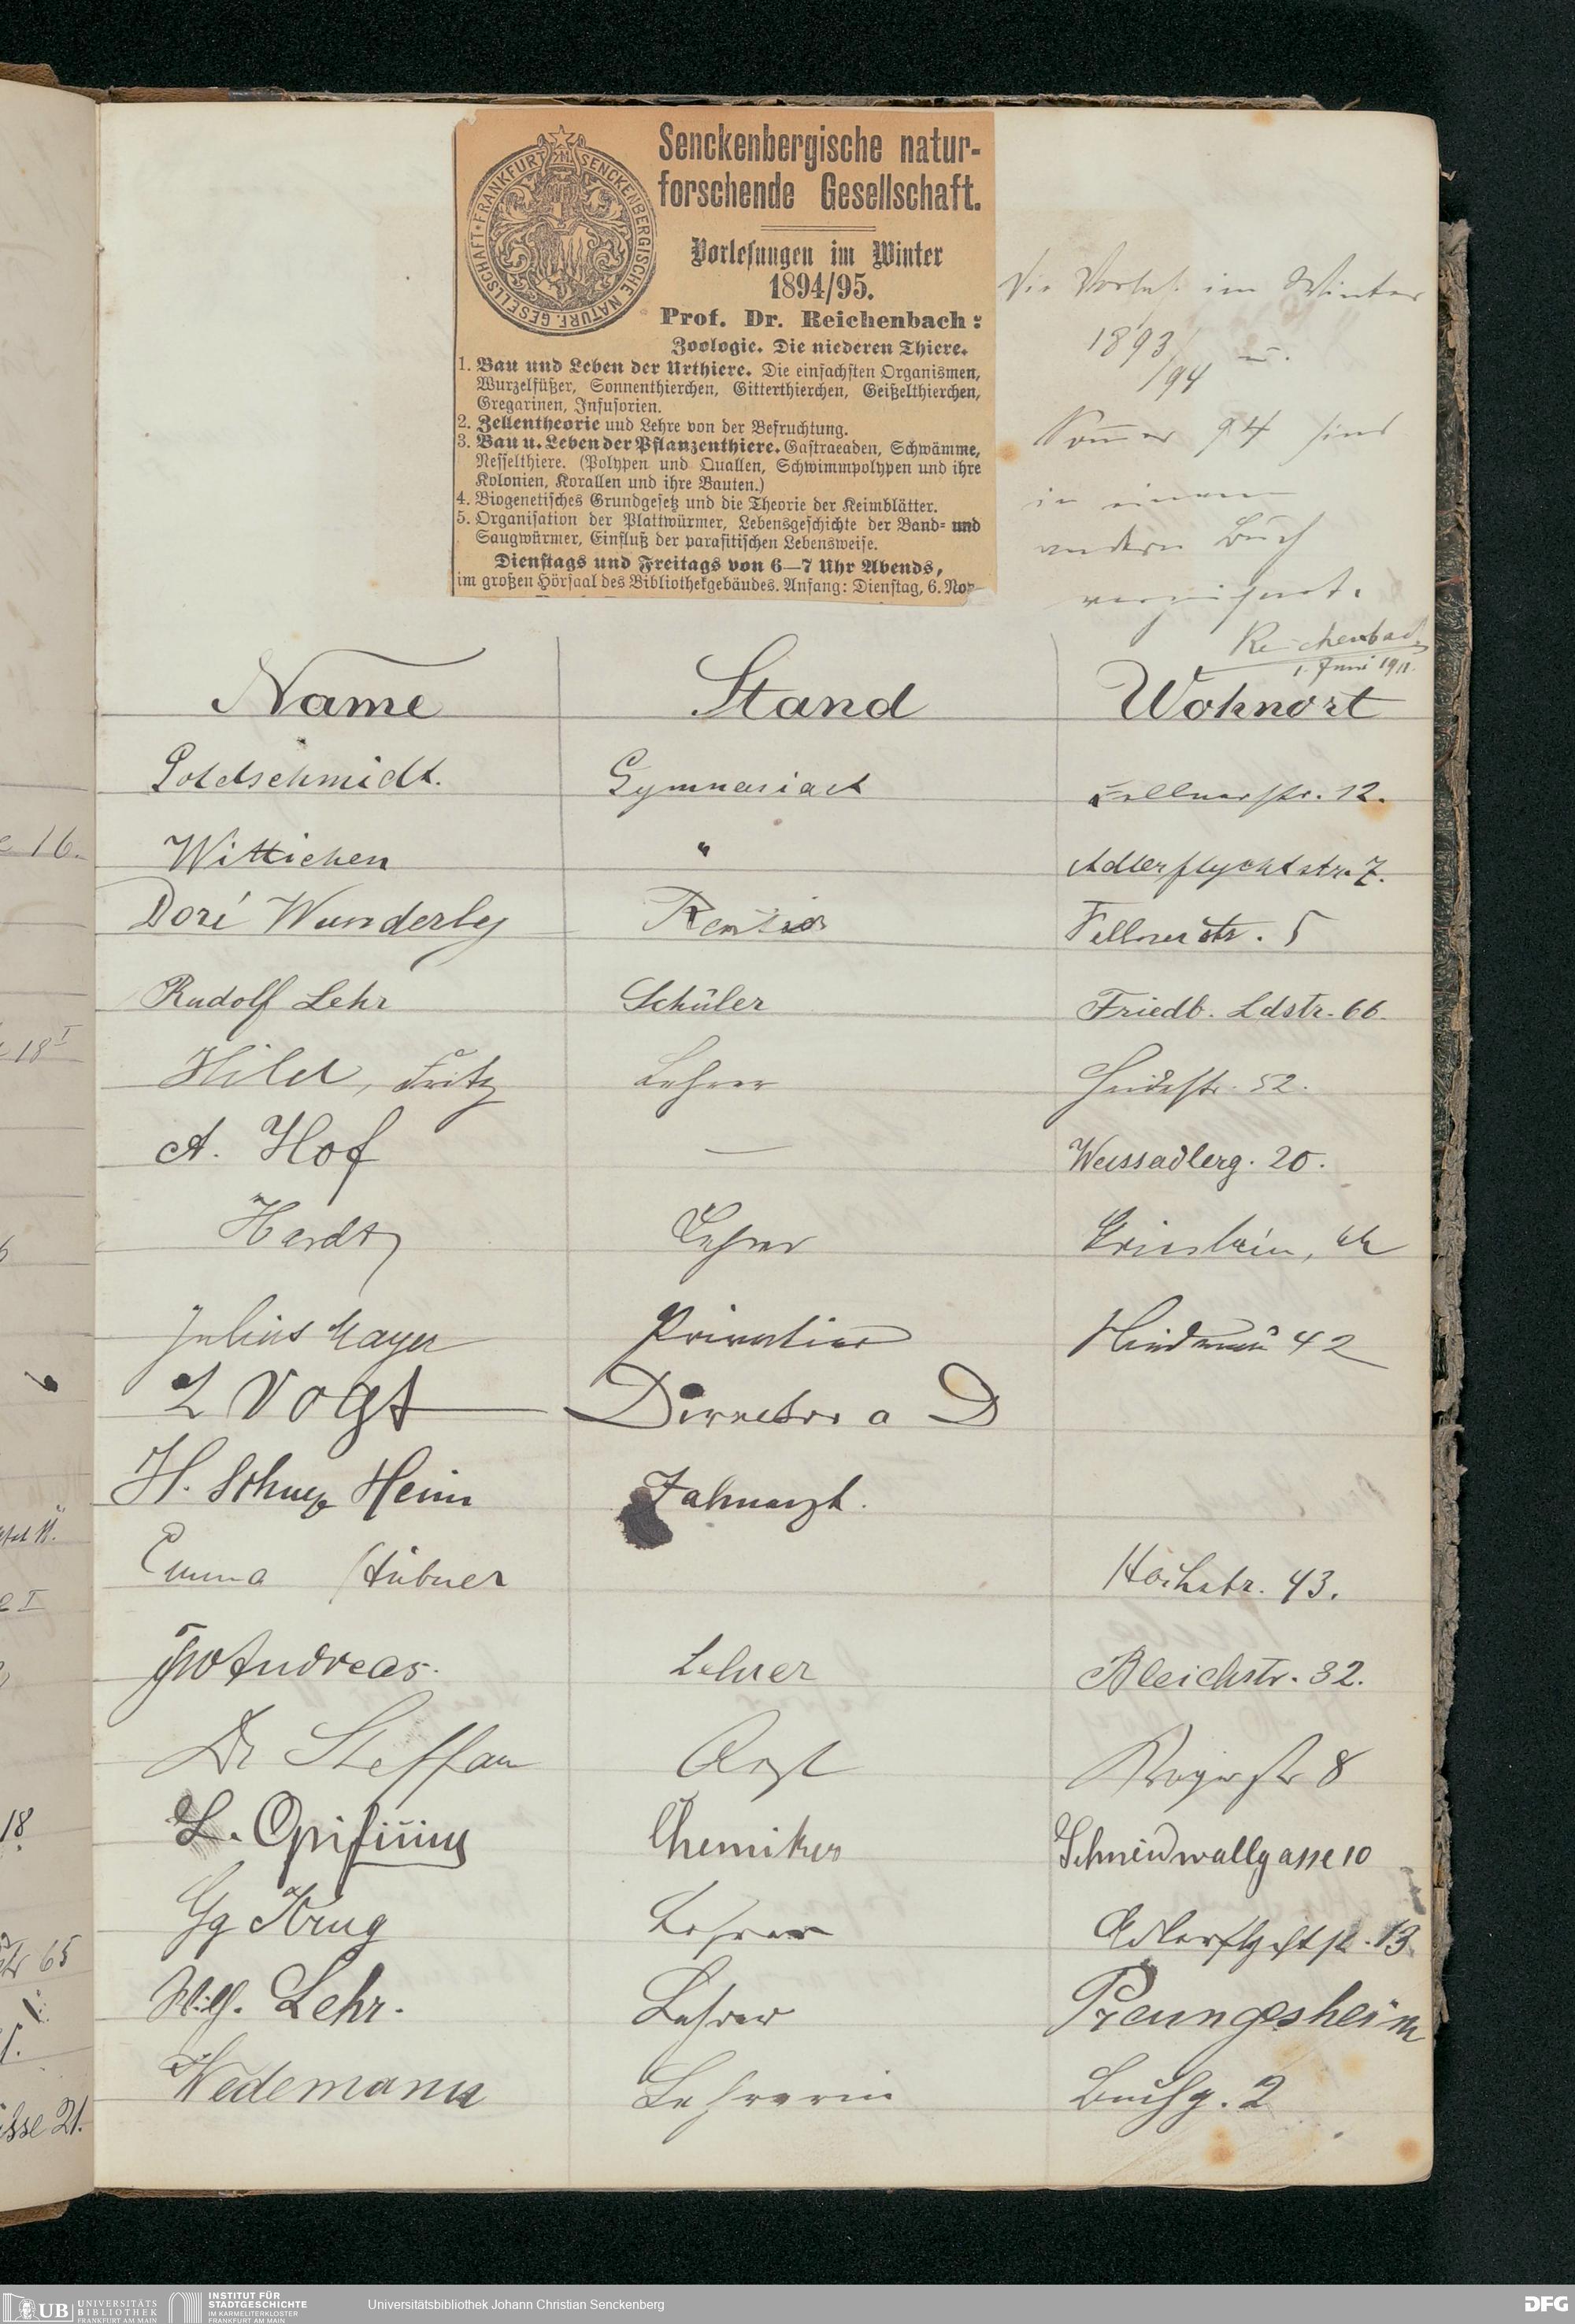 FRANKFURT A/M SENCKENBERGISCHE NATURF. GESELLSCHAFT
Senckenbergische natur-
forschende Gesellschaft.
Vorlesungen im Winter
1894/95.
Prof. Dr. Reichenbach:
Zoologie. Die niederen Thiere.
1. Bau und Leben der Urthiere. Die einfachsten Organismen,
Wurzelfüßer, Sonnenthierchen, Gitterthierchen, Geißelthierchen,
Gregarinen, Infusorien.
2. Zellentheorie und Lehre von der Befruchtung.
3. Bau u. Leben der Pflanzenthiere. Gastraeaden, Schwämme,
Nesselthiere. (Polypen und Quallen, Schwimmpolypen und ihre
Kolonien, Korallen und ihre Bauten.)
4. Biogenetisches Grundgesetz und die Theorie der Keimblätter.
5. Organisation der Plattwürmer, Lebensgeschichte der Band- und
Saugwürmer, Einfluß der parasitischen Lebensweise.
Dienstags und Freitags von 6—7 Uhr Abends,
im großen Hörsaal des Bibliothekgebäudes. Anfang: Dienstag, 6. Nov
Die Vorles. im Winter
1893/94 u.
Sommer 94 sind
in einem
andern Buch
verzeichnet.
Reichenbach
1. Juni 1911.
Name Stand Wohnort
Goldschmidt. Gymnasiast Fellnerstr. 12.
Wittichen " Adlerflychtstr. 7.
Doré Wunderly Fellnerstr. 5
Rudolf Lehr Schüler Friedb. Ldstr. 66.
Hild, Fritz Lehrer Heidestr. 52.
A. Hof — Weissadlerg. 20.
Hardt Lehrer Griesheim,
Julius Mayer Privatier 42
L Vogt Director a D
H. Heim Zahnarzt.
Emma Hübner Hochstr. 43.
Andreas. Lehrer Bleichstr. 32.
Dr Steffan Arzt 8
L. Opificius Chemiker Schneidwallgasse 10
Gg Krug Lehrer Adlerflychtstr. 13
Wilh. Lehr. Lehrer Preungesheim
Wedemann Lehrerin Buchg. 2
16.
18 I
18
65
sse 21.
UB UNIVERSITÄTS
BIBLIOTHEK
FRANKFURT AM MAIN
INSTITUT FÜR
STADTGESCHICHTE
IM KARMELITERKLOSTER
FRANKFURT AM MAIN
Universitätsbibliothek Johann Christian Senckenberg
DFG